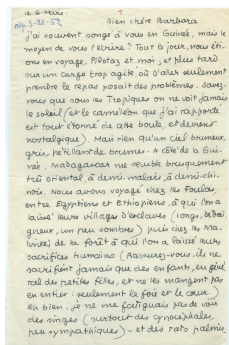 le 6 Mars.
rép. 3-20-52
1
Bien chère Barbara
j'ai souvent songé à vous en Guinée, mais le
moyen de vous l'écrire? Tout le jour, nous éti-
ons en voyage, Pilotaz et moi, et plus tard
sur un cargo trop agité, où d'aller seulement
prendre le repas posait des problèmes. Savez-
vous que sous les Tropiques on ne voit jamais
le soleil (et le caméléon que j'ai rapporté
est tout étonné de cette boule, et devient
nostalgique). Mais rien qu'un ciel brumeux,
gris, pétillant de brumes. A côté de la Gui-
née, Madagascar me semble brusquement
très oriental, à demi-malais, à demi-chi-
nois. Nous avons voyagé chez les Foulas,
entre Egyptiens et Ethiopiens, à qui l'on a
laissé leurs villages d'esclaves (longs, dédai-
gneux, un peu sombres) puis chez les Ma-
linkés de la forêt à qui l'on a laissé leurs
sacrifices humains (Rassurez-vous, ils ne
sacrifient jamais que des enfants, en géné-
ral des petites filles, et ne les mangent pas
en entier: seulement le foie et le cœur)
Eh bien, je ne me fatiguais pas de voir
des singes (surtout des cynocéphales,
peu sympathiques) — et des rats palmis-